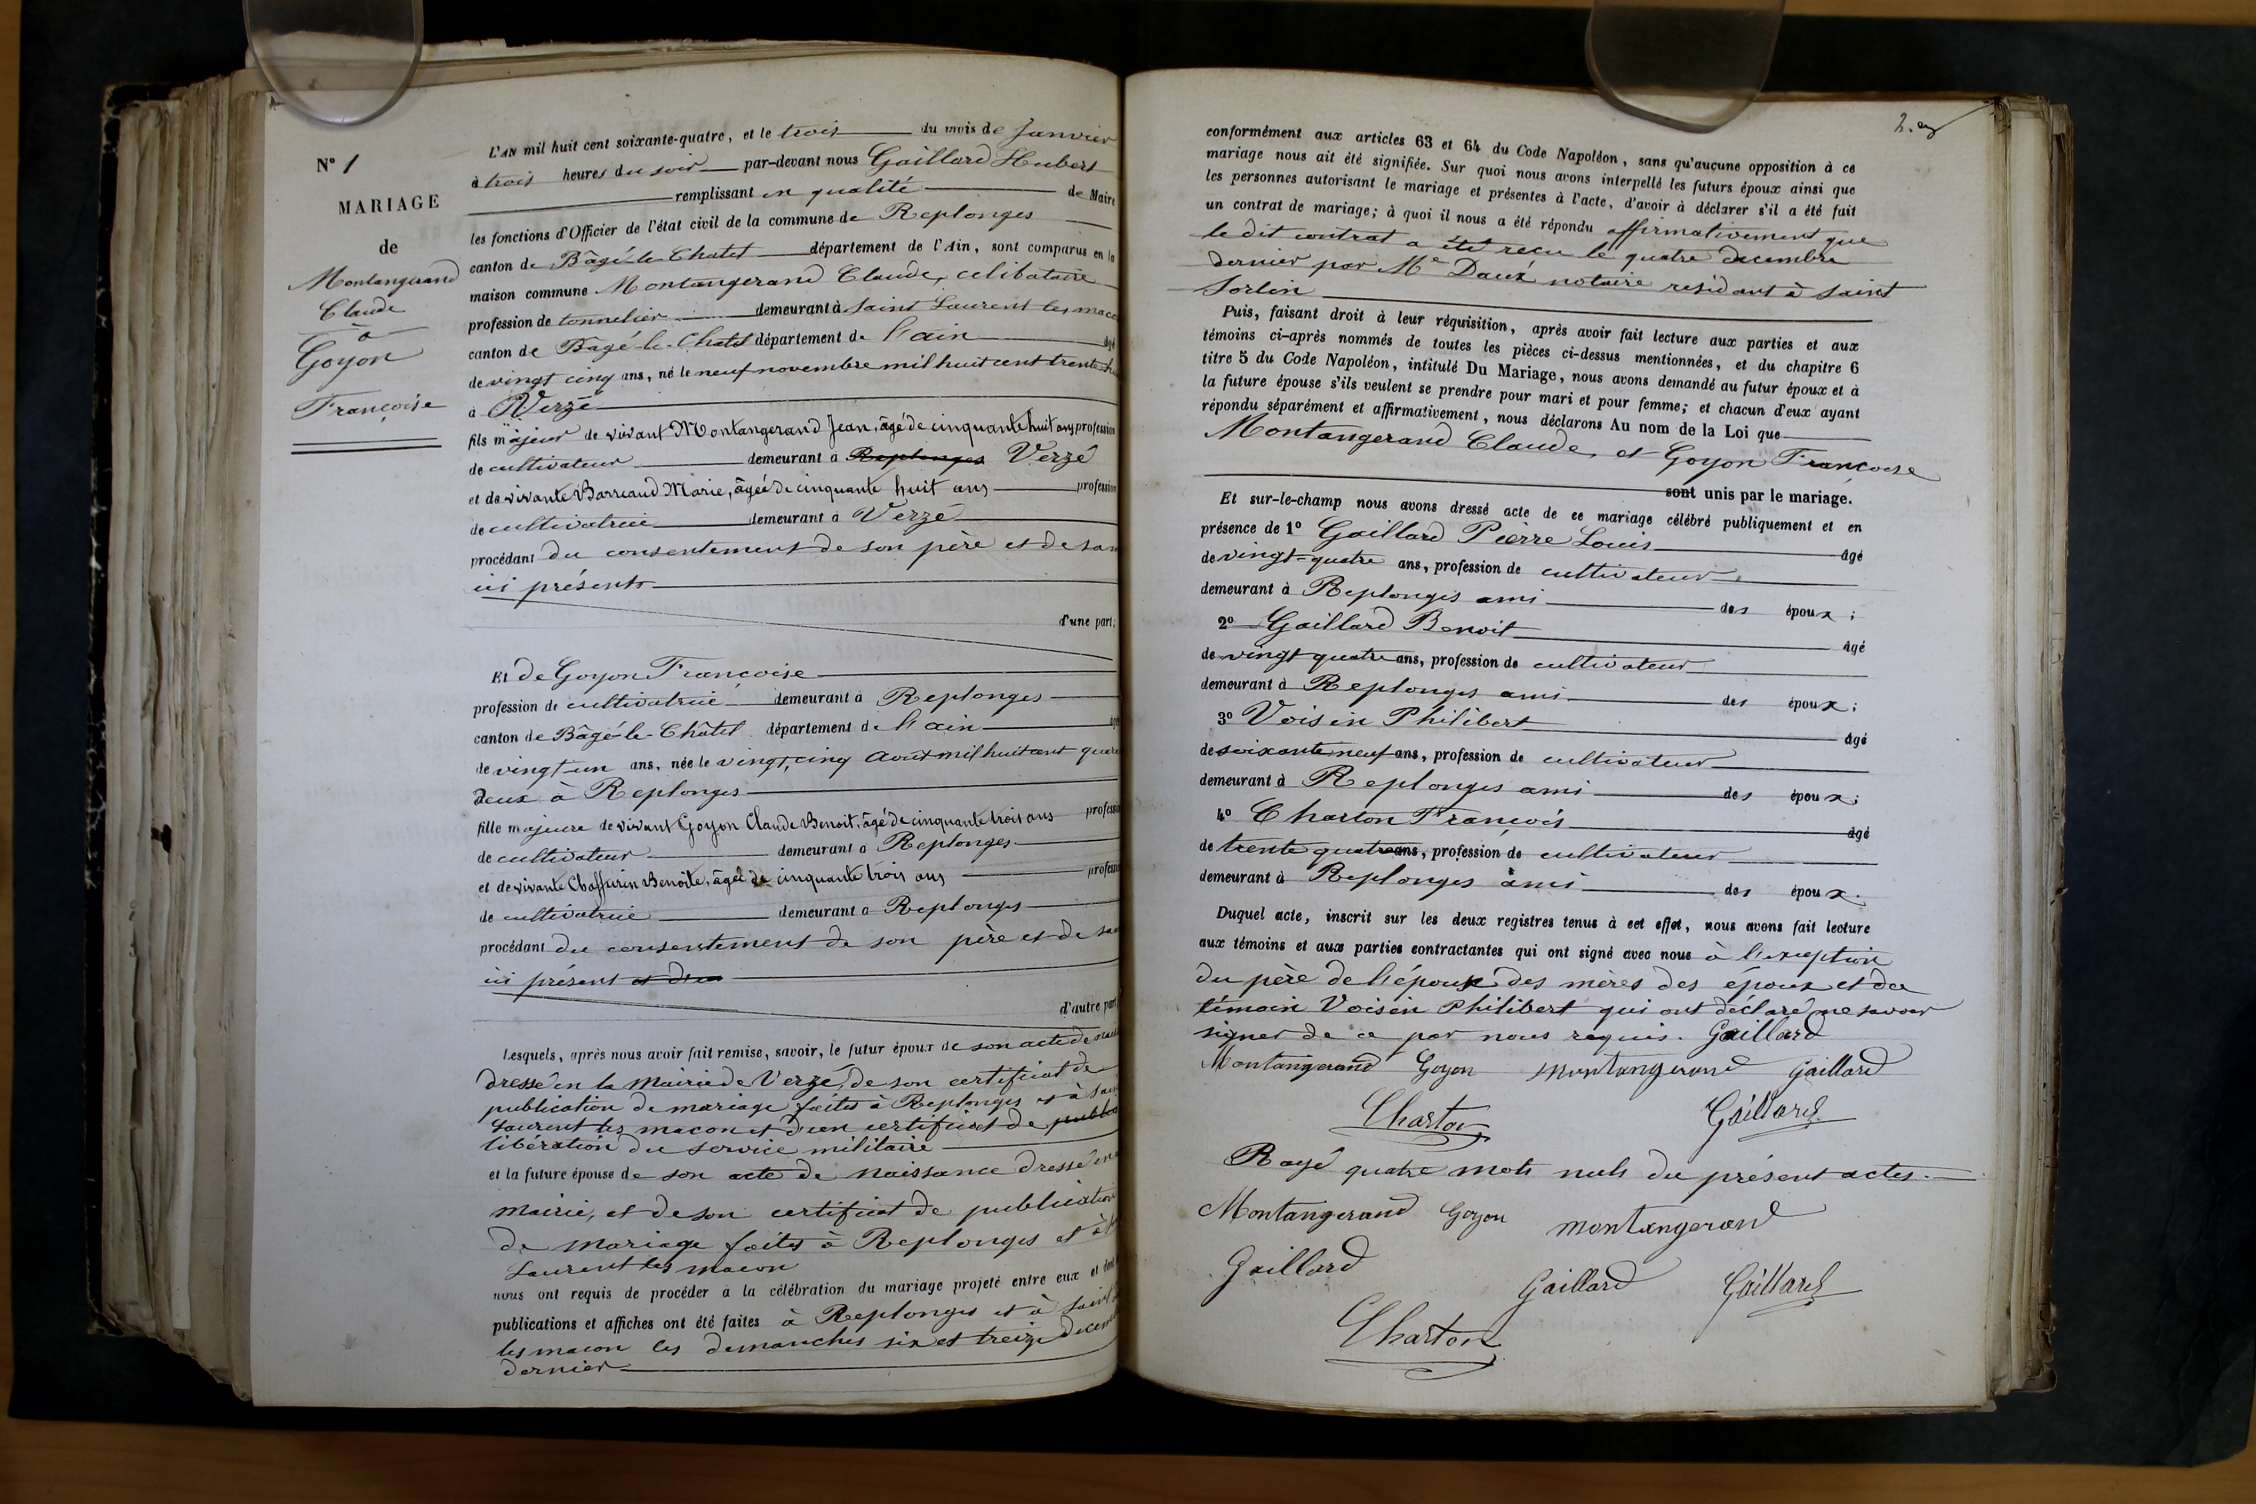 N° 1
MARIAGE
de
Montangerand
Claude
à
Goyon
Françoise
L'AN mil huit cent soixante-quatre, et le trois du mois de Janvier
à trois heures du soir par-devant nous Gaillard Hubert
remplissant en qualité de Maire
les fonctions d'Officier de l'état civil de la commune de Replonges
canton de Bâgé-le-Chatel département de l'Ain, sont comparus en la
maison commune Montangerand Claude, celibataire
profession de tonnelier demeurant à Saint Laurent les maco
canton de Bagé-le-Chatel département de l'ain âgé
de vingt cinq ans, né le neuf novembre mil huit cent trente
à Verzé
fils majeur de vivant Montangerand Jean, âgé de cinquante huit ans profession
de cultivateur demeurant à Replonges Verzé
et de vivante Barraud Marie, âgée de cinquante huit ans profession
de cultivatrice demeurant à Verzé
procédant du consentement de son père et de sa
ici présents
d'une part;
Et de Goyon Françoise
profession de cultivatrice demeurant à Replonges
canton de Bâgé-le-Châtel département de l'ain âgé
de vingt-un ans, née le vingt, cinq Août mil huit cent quara
deux à Replonges
fille majeure de vivant Goyon Claude Benoit, âgé de cinquante trois ans professio
de cultivateur demeurant à Replonges
et de vivante Chaffurin Benoite, âgée de cinquante trois ans profession
de cultivatrice demeurant à Replonges
procédant du consentement de son père et de sa
ici présent et de
d'autre part
Lesquels, après nous avoir fait remise, savoir, le futur époux de son acte de naiss
dressé en la Mairie de Verzé, de son certificat de
publication de mariage faites à Replonges et à Sain
Laurent les macon et d'un certificat de public
libération du service militaire
et la future épouse de son acte de naissance dressé en
mairie, et de son certificat de publication
de mariage faites à Replonges et à
Laurent les macon
nous ont requis de procéder à la célébration du mariage projeté entre eux et dont
publications et affiches ont été faites à Replonges et à Saint
les macon les dimanches six et treize décem
dernier
2.
conformément aux articles 63 et 64 du Code Napoléon, sans qu'aucune opposition à ce
mariage nous ait été signifiée. Sur quoi nous avons interpellé les futurs époux ainsi que
les personnes autorisant le mariage et présentes à l'acte, d'avoir à déclarer s'il a été fait
un contrat de mariage; à quoi il nous a été répondu affirmativement que
le dit contrat a été reçu le quatre decembre
dernier par Me Daux notaire résidant à Saint
Sorlin
Puis, faisant droit à leur réquisition, après avoir fait lecture aux parties et aux
témoins ci-après nommés de toutes les pièces ci-dessus mentionnées, et du chapitre 6
titre 5 du Code Napoléon, intitulé Du Mariage, nous avons demandé au futur époux et à
la future épouse s'ils veulent se prendre pour mari et pour femme; et chacun d'eux ayant
répondu séparément et affirmativement, nous déclarons Au nom de la Loi que
Montangerand Claude, et Goyon Francoise
sont unis par le mariage.
Et sur-le-champ nous avons dressé acte de ce mariage célébré publiquement et en
présence de 1° Gaillard Pierre Louis âgé
de vingt-quatre ans, profession de cultivateur
demeurant à Replonges ami des époux;
2° Gaillard Benoit âgé
de vingt quatre ans, profession de cultivateur
demeurant à Replonges ami des époux;
3° Voisin Philibert âgé
de soixante neuf ans, profession de cultivateur
demeurant à Replonges ami des époux;
4° Charton François âgé
de trente quatre ans, profession de cultivateur
demeurant à Replonges ami des époux.
Duquel acte, inscrit sur les deux registres tenus à cet effet, nous avons fait lecture
aux témoins et aux parties contractantes qui ont signé avec nous à l'exception
du père de l'époux des mères des époux et du
témoin Voisin Philibert qui ont déclaré ne savoir
signer de ce par nous requis. Gaillard
Montangerand Goyon montangerand Gaillard
Charton Gaillard
Rayé quatre mots nuls du présent actes.
Montangerand Goyon montangerand
Gaillard Gaillard Gaillard
Charton